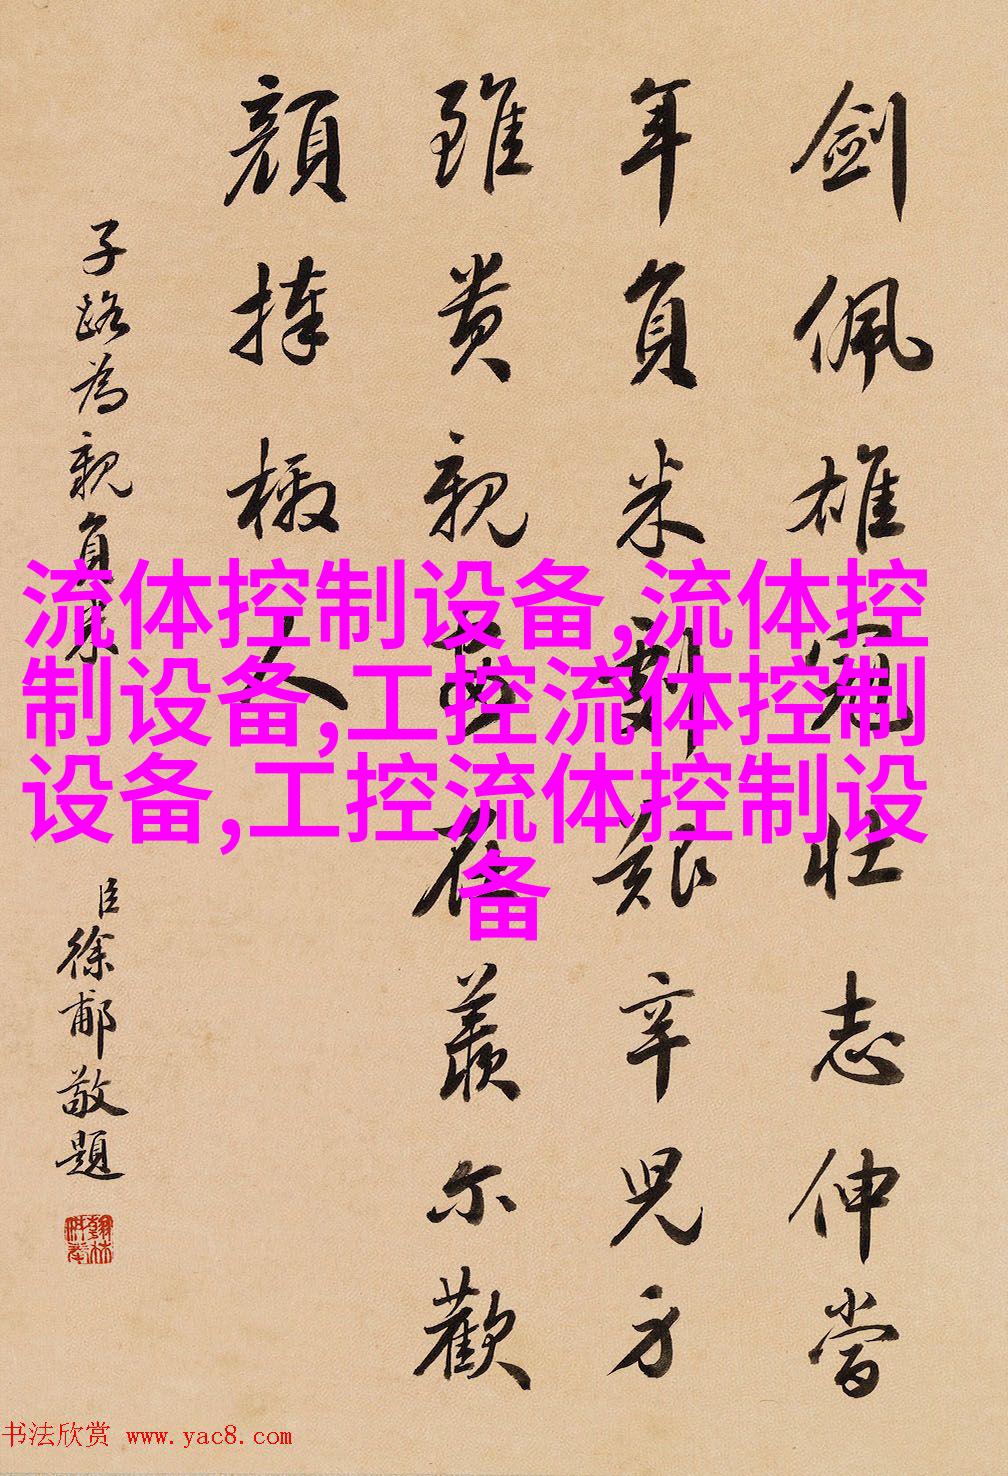 劍佩雄冠壯志伸當
年負米艱辛兒方
雖貴親在羨尔歡
顏捧檄人
子路為親負米
臣徐郙敬題
流体控制设备,流体控
制设备,工控流体控制
设备,工控流体控制设
备
书法欣赏 www.yac8.com